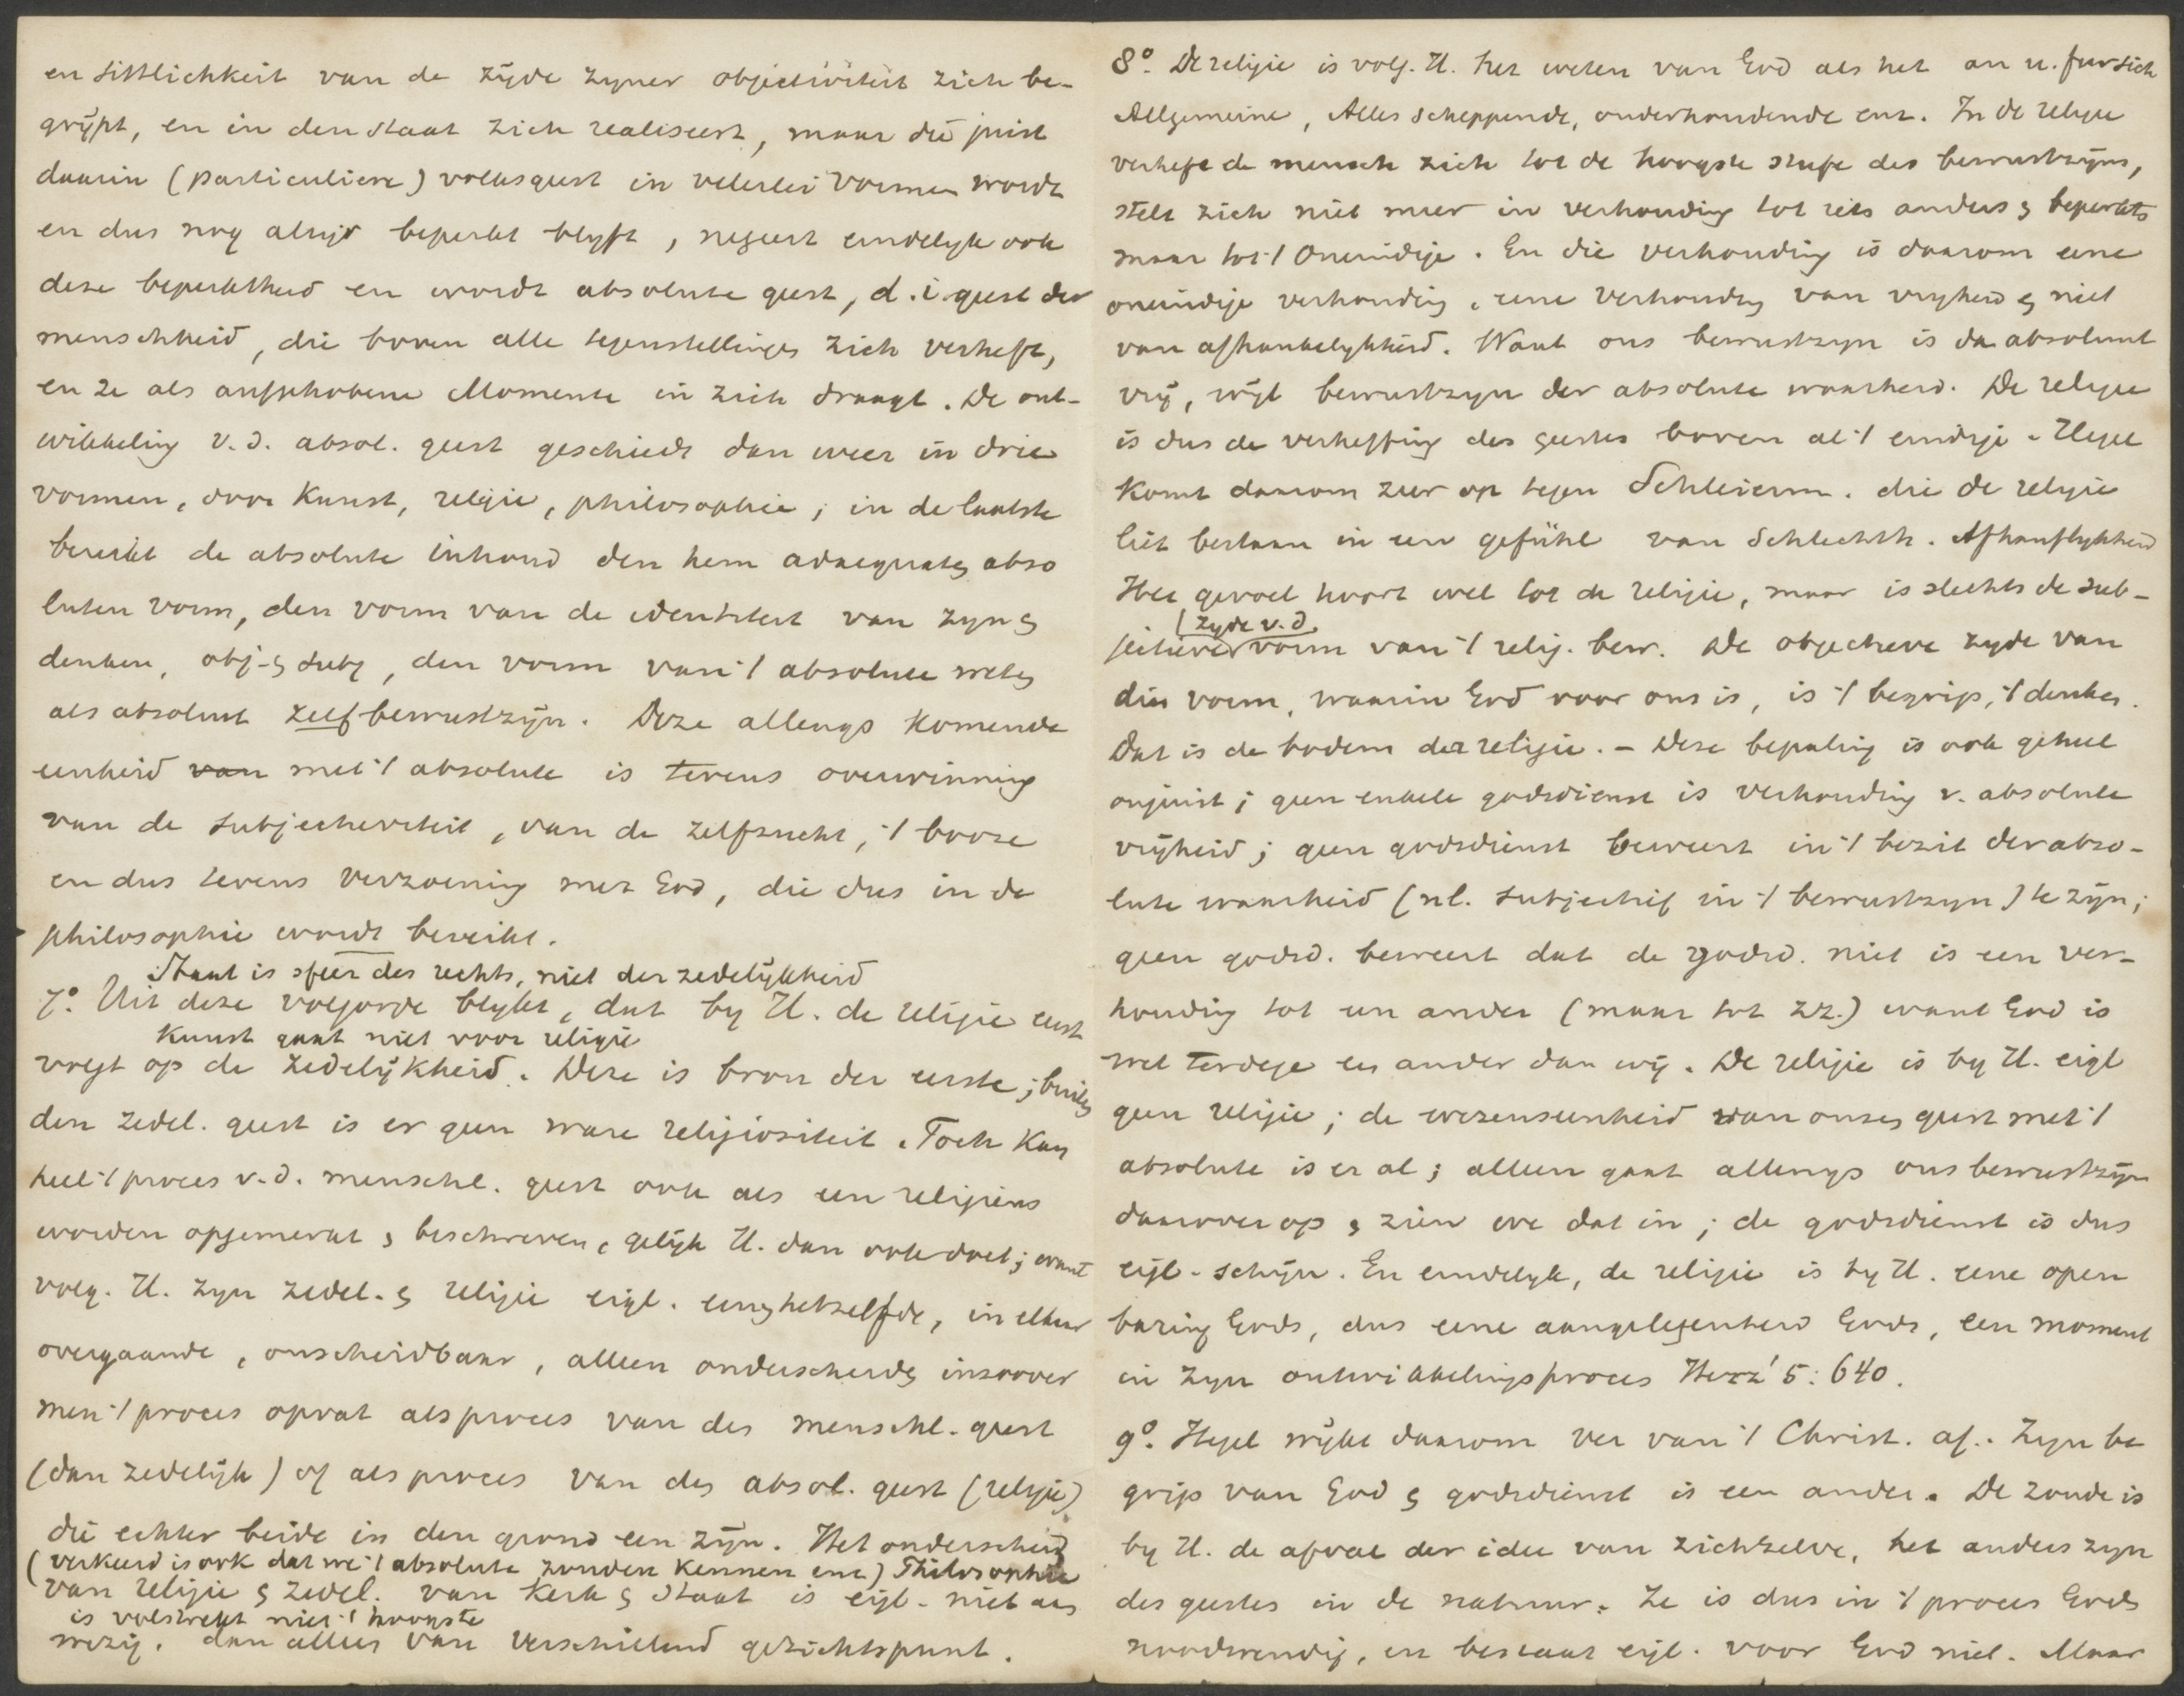 en Sittlichkeit van de zijde zyner objectiviteit zich be-
grijpt, en in den Staat zich realiseert, maar die juist
daarin (particuliere) volksgeest in velerlei vormen wordt
en dus nog altijd beperkt blyft, negeert eindelyk ook
deze beperktheid en wordt absolute geest, d.i. geest der
menschheid, die boven alle tegenstellingen zich verheft,
en ze als aufgehobene Momente in zich draagt. De ont-
wikkeling v.d. absol. geest geschiedt dan weer in drie
vormen, door Kunst, religie, philosophie; in de laatste
bereikt de absolute inhoud den hem adaequaten abso
luten vorm, den vorm van de identiteit van zyn &
denken, obj- & subj, den vorm van 't absolute weten
als absoluut zelfbewustzijn. Deze allengs komende
eenheid van met 't absolute is tevens overwinning
van de subjectiviteit, van de zelfzucht, 't booze
en dus tevens verzoening met God, die dus in de
philosophie wordt bereikt.
Staat is sfeer des rechts, niet der zedelijkheid
7°. Uit deze volgorde blykt, dat by H. de religie eerst
Kunst gaat niet voor religie
volgt op de zedelijkheid. Deze is bron der eerste; buiten
den zedel. geest is er geen ware religiositeit. Toch kan
heel 't proces v.d. menschl. geest ook als een religieus
worden opgemerkt & beschreven, gelijk H. dan ook doet; want
volg. H. zyn zedel. & religie eigl. een & hetzelfde, in elkaar
overgaande, onscheidbaar, alleen onderscheiden inzoover
men 't proces opvat als proces van den menschl. geest
(dan zedelijk) of als proces van den absol. geest (religie)
die echter beide in den grond een zijn. Het onderscheid
(verkeerd is ook dat we 't absolute zouden kennen enz) Philosophie
van religie & zedel. van Kerk & Staat is eigl. niet aan
is volstrekt niet 't hoogste
wezig, dan alleen van verschillend gezichtspunt.
8°. De religie is volg. H. het weten van God als het an u. fur sich
Allgemeine, Alles scheppende, onderhoudende enz. In de religie
verheft de mensch zich tot de hoogste stufe des bewustzijns,
stelt zich niet meer in verhouding tot iets anders & beperkts
maar tot 't Oneindige. En die verhouding is daarom eene
oneindige verhouding, eene verhouding van vryheid & niet
van afhankelykheid. Want ons bewustzyn is da absoluut
vrij, wijl bewustzyn der absolute waarheid. De religie
is dus de verheffing des geestes boven al 't eindige. Hegel
komt daarom zeer op tegen Schleierm. die de religie
liet bestaan in een gefühl van Schlechth. Afhanflykheid
Het gevoel hoort wel tot de religie, maar is slechts de sub-
(zyde v.d.
jectieve vorm van 't relig. bew. De objectieve zyde van
dien vorm, waarin God voor ons is, is 't begrip, 't denken.
Dat is de bodem der religie. – Deze bepaling is ook geheel
onjuist; geen enkele godsdienst is verhouding v. absolute
vrijheid; geen godsdienst beweert in 't bezit der abso-
lute waarheid (nl. subjectief in 't bewustzyn) te zijn;
geen godsd. beweert dat de godsd. niet is een ver-
houding tot een ander (maar tot zz.) want God is
wel terdege een ander dan wij. De religie is by H. eigl
geen religie; de wezenseenheid van onzen geest met 't
absolute is er al; alleen gaat allengs ons bewustzijn
daarover op & zien we dat in; de godsdienst is dus
eigl. schijn. En eindelyk, de religie is by H. eene open
baring Gods, dus eene aangelegenheid Gods, een moment
in zyn ontwikkelingsproces Herz' 5: 640.
9°. Hegel wijkt daarom ver van 't Christ. af. Zyn be
grip van God & godsdienst is een ander. De zonde is
by H. de afval der idee van zichzelve, het anders zyn
des geestes in de natuur. Ze is dus in 't proces Gods
noodwendig, en bestaat eigl. voor God niet. Maar